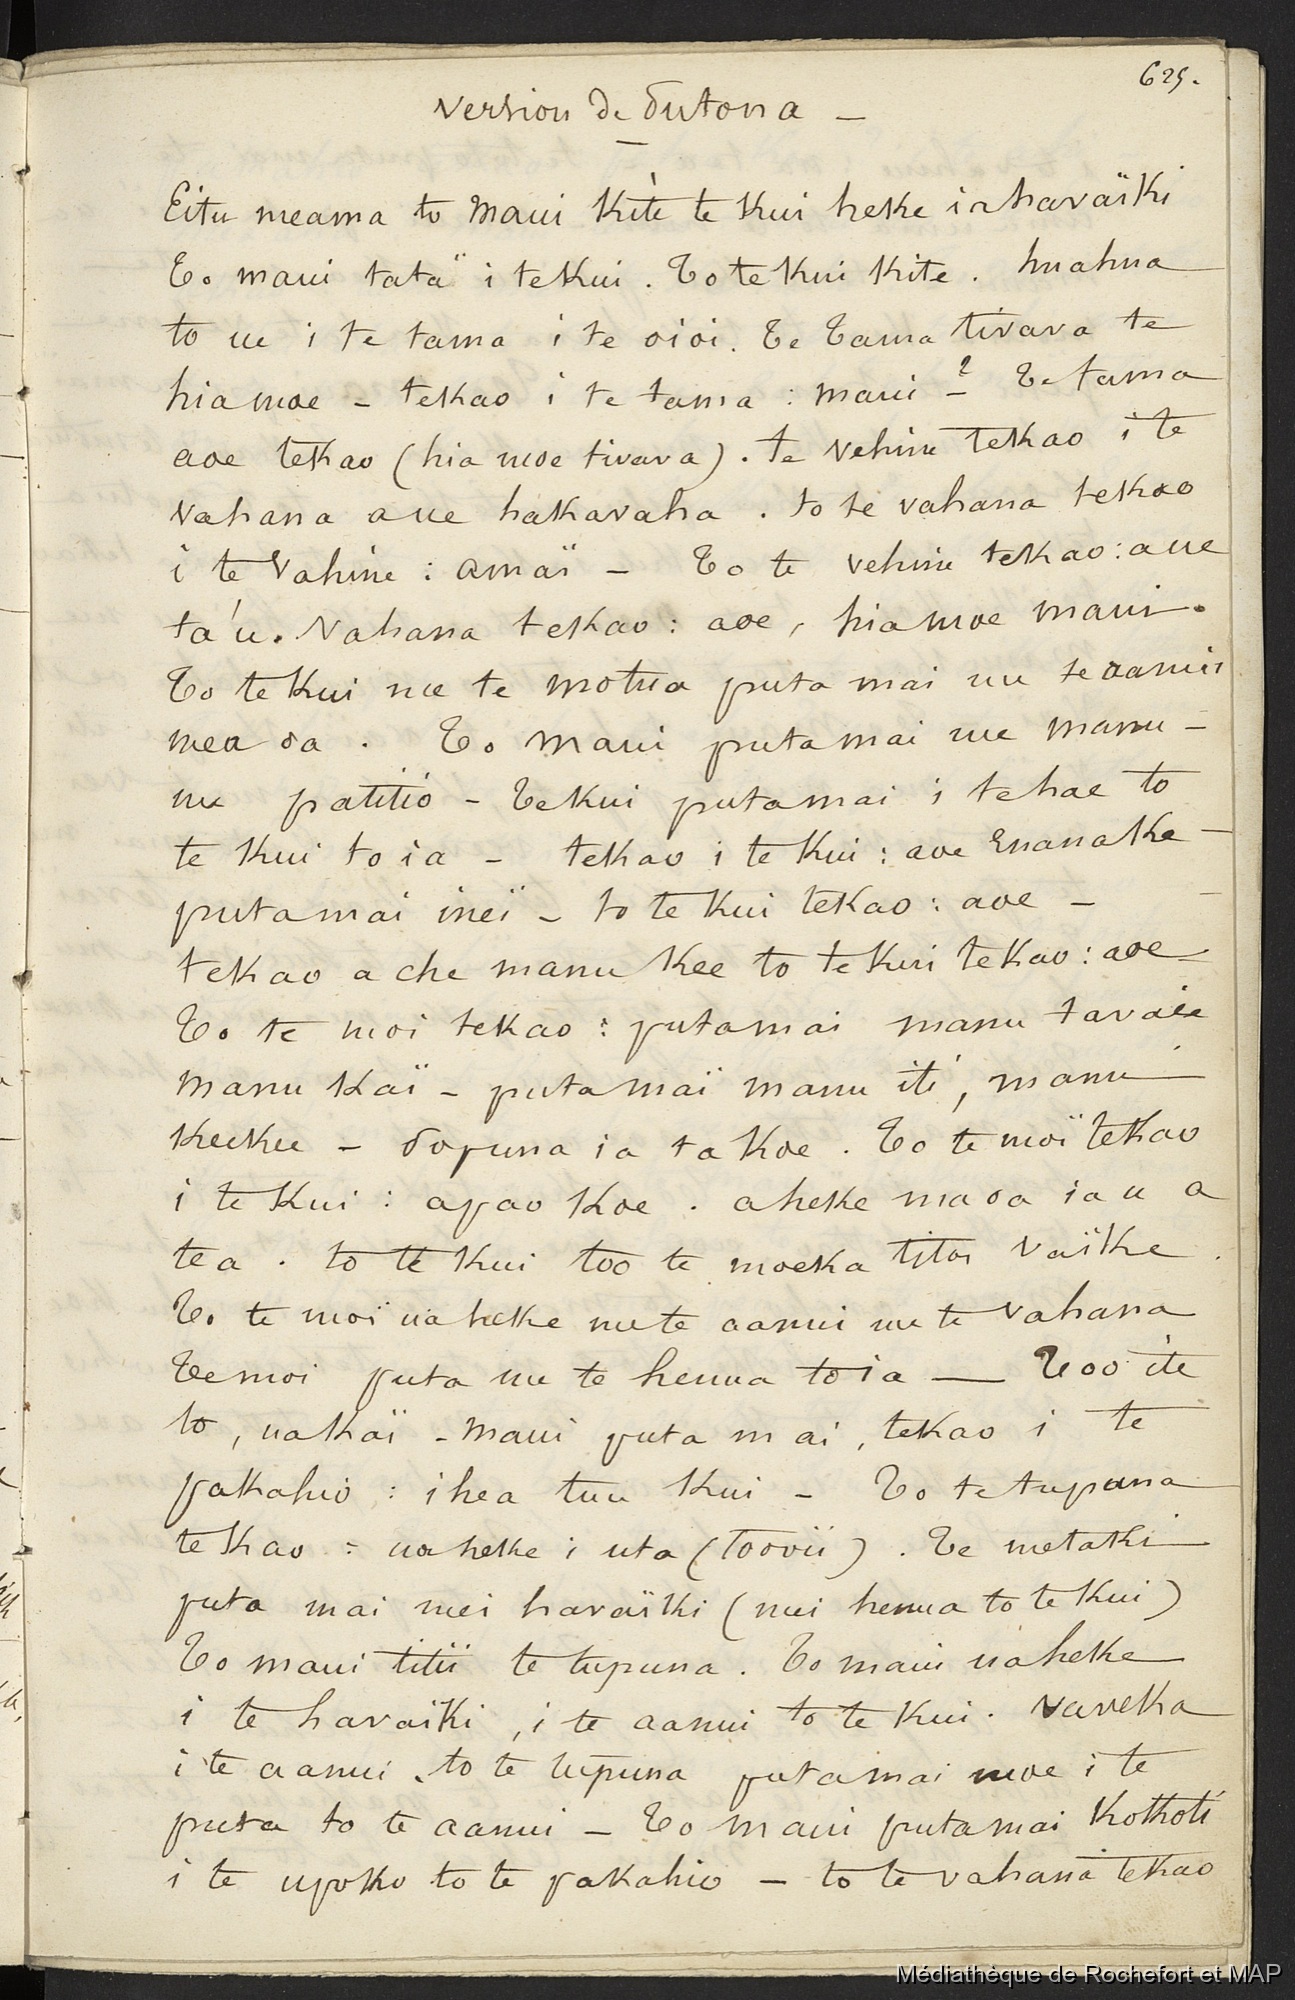 625.
Version de Outona –
Eitu meama to Maui Kité te Kui heke ia havaïki
To maui tataï i te Kui. To te Kui Kite. huahua
to ue i te tama i te oioi. Te Tama tivava te
hiamoe – tekao i te tama : maui –? Te tama
aoe tekao (hia moe tivava). te vehine tekao i te
vahana aue hakavaha. to te vahana tekao
i te Vahine : amaï – To te vehine tekao : aue
ta'u. Vahana tekao : aoe, hiamoe maui.
To te Kui me te motua puta mai me te aanui
mea oa. To Maui putamai me manu –
me patitió – Te Kui putamai i te hae to
te Kui to ia – tekao i te Kui : aoe Enana Ke –
putamai ineï – to te Kui tekao : aoe –
tekao a ehe manu Kee to te Kui tekao : aoe
To te moi tekao : putamai manu tavaie
manu Kaï – putamaï manu iti, manu
Keukeu – Oopuna ia ta Koe. To te moï tekao
i te Kui : apao Koe. aheke ma oa ia u a
tea. to te Kui too te moeka titoi Vaïke.
To te moï ua heke me te aanui me te Vahana
Te moi puta me te henua to ia — Too ite
to, ua Kaï – Maui puta mai, tekao i te
pakahio : ihea tuu Kui – To te tupuna
tekao : ua heke i uta (toovii). Te metaki
puta mai mei havaïki (mei henua to te Kui)
To maui titii te tupuna. To maui ua heke
i te havaïki, i te aanui to te Kui. Vaveka
i te aanui. to te tupuna putamai moe i te
puta to te aanui – To maui putamai Kokoti
i te upoko to te pakahio – to te vahana tekao
Médiathèque de Rochefort et MAP